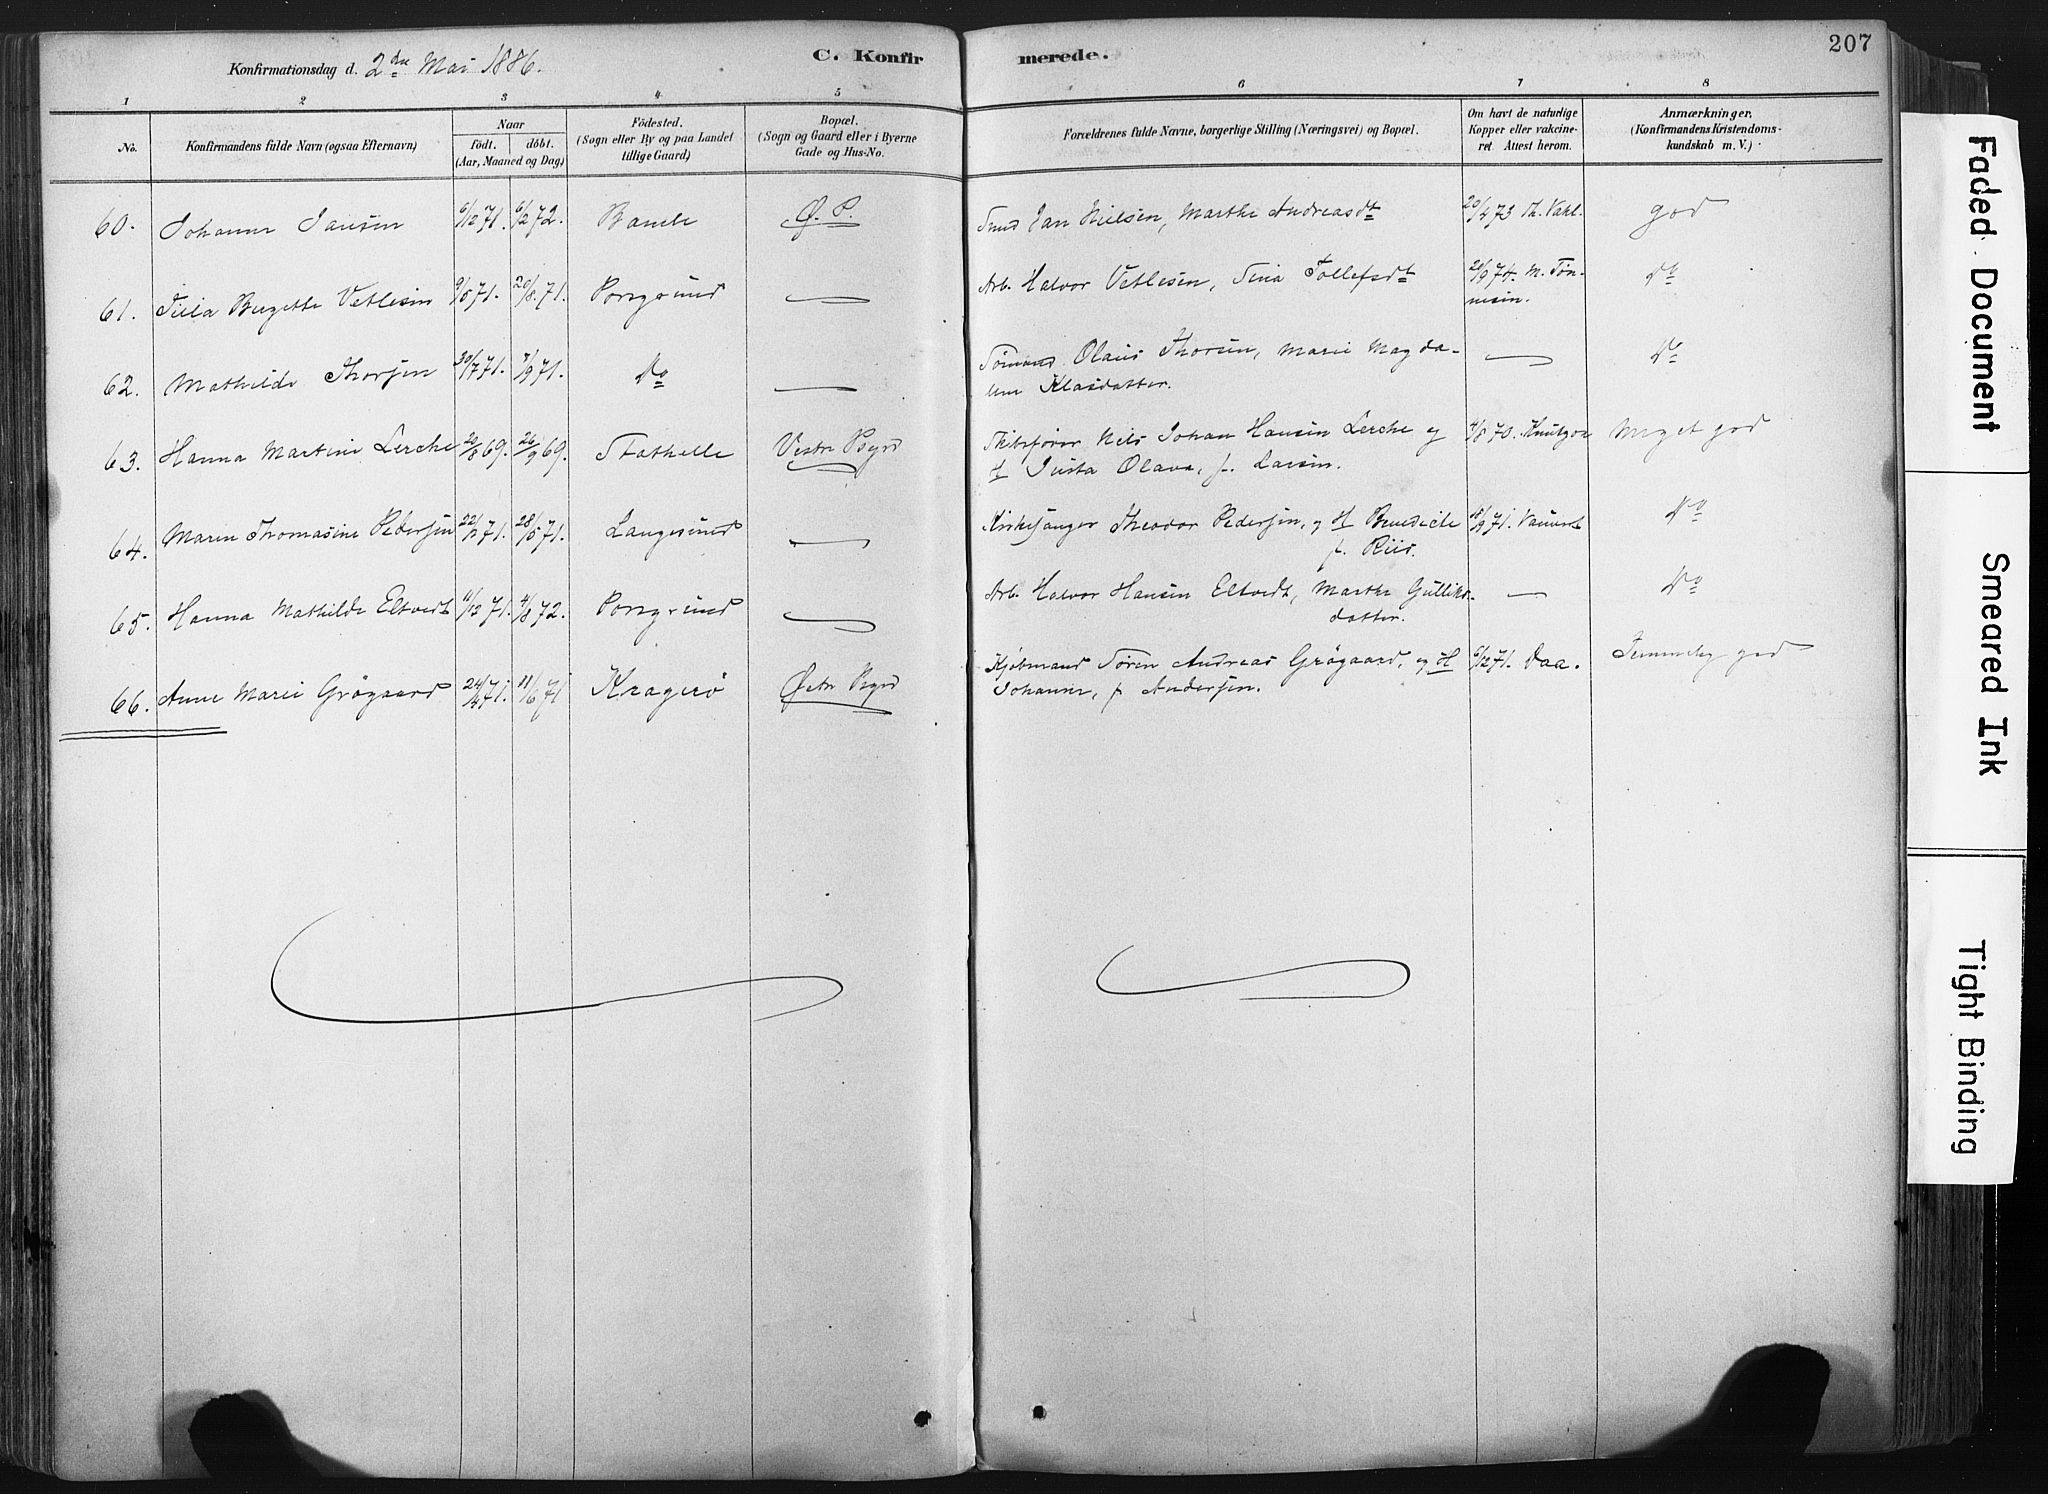 207
Konfirmationsdag d. 2den Mai 1886.
C. Konfirmerede.
1 2 3 4 5 6 7 8
No.
Konfirmandens fulde Navn (ogsaa Efternavn)
Naar
födt. döbt.
(Aar, Maaned og Dag)
Födested.
(Sogn eller By og paa Landet
tillige Gaard)
Bopæl.
(Sogn og Gaard eller i Byerne
Gade og Hus-No.
Forældrenes fulde Navne, borgerlige Stilling (Næringsvei) og Bopæl.
Om havt de naturlige
Kopper eller vakcine-
ret. Attest herom.
Anmærkninger,
(Konfirmandens Kristendoms-
kundskab m. V.)
60. Johanne Jansen 6/12 71. 6/2 72. Bamle Ø. P. Smed Jan Nielsen, Marthe Andreasdt 20/4 73 Th. Vahl. god
61. Bergette Vetlesen 9/5 71. 20/8 71. Porsgrund Arb. Halvor Vetlesen, Tollefsdt 28/9 74. M. Tøn-
nesen. Do
62. Mathilde Thorsen 30/7 71. 7/9 71. Do Sømand Olaus Thorsen, Marie Magda-
lene Klasdatter. Do
63. Hanna Martine Lerche 20/8 69. 26/9 69. Stathelle Vestre Psgrd Skibsfører Nils Johan Hansen Lerche og
H Justa Olava, f. Larsen. 4/8 70. Meget god
64. Maren Thomasine Pedersen 28/5 71. Langesund Kirkesanger Theodor Pedersen, og H Benedicte
f. Riis. 18/9 71. Do
65. Hanna Mathilde Eltvedt 11/12 71. 4/8 72. Porsgrund Arb. Halvor Hansen Eltvedt, Marthe Gulliks-
datter. Do
66. Anne Marie Grögaard 24/4 71. 11/6 71 Kragerø Østre Psgrd Kjøbmand Søren Andreas Grögaard, og H
Johanne, f. Andersen. 6/12 71. Daa. Temmelig god
Faded Document
Smeared Ink
Tight Binding